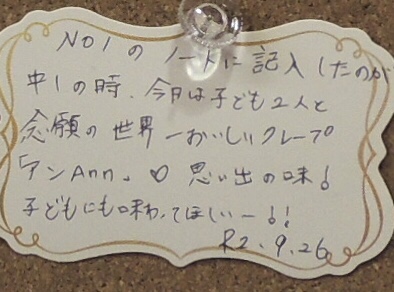 NO1の ノートに記入したのが
中1の時、今日は子ども2人と
念願の世界一おいしいクレープ
「アンAnn」♡ 思い出の味!
子どもにも味わってほしいー!!
R2.9.26